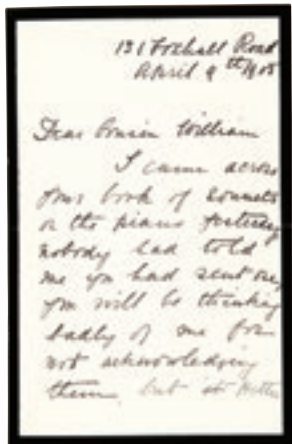 131 Foxhall Road
April 9th/08
Dear Cousin William
I came across
your book of Sonnets
on the piano yesterday
nobody had told
me you had sent one,
you will be thinking
badly of me for
not acknowledging
them but it